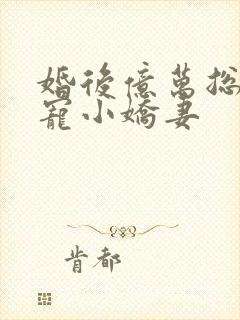 婚後億萬總
寵小嬌妻
肯都